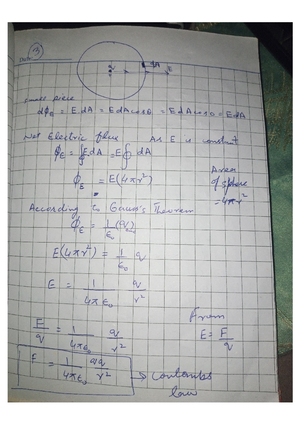 Date:
q
dA
r
E
small piece
dϕE = E dA = E dA cosθ = E dA cos0 = E dA
Net Electric flux As E is constant
ϕE = ∮E dA = E∮ dA
ϕE = E(4πr²)
Area of sphere = 4πr²
According to Gauss's Theorem
ϕE = 1/ε0 (q)
E(4πr²) = 1/ε0 q
E = 1/4πε0 q/r²
E/q = 1/4πε0 q/r²
From
E = F/q
F = 1/4πε0 qq/r² → Coulombs law